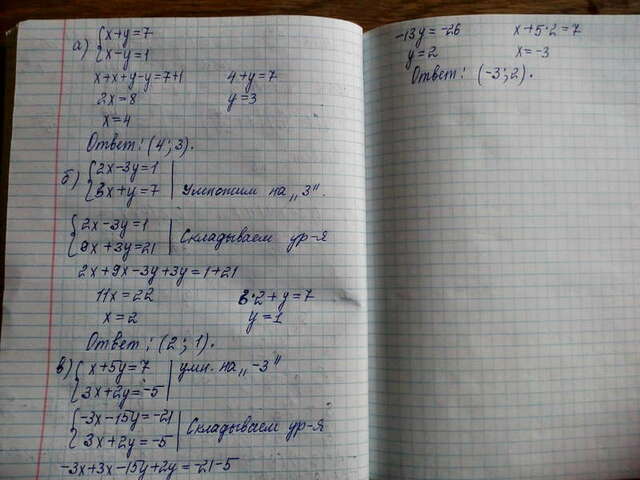 а) {x+y=7
{x-y=1
x+x+y-y=7+1    4+y=7
2x=8    y=3
x=4
Ответ: (4; 3).
б) {2x-3y=1
{3x+y=7 | Умножим на „3".
{2x-3y=1
{9x+3y=21 | Складываем ур-я
2x+9x-3y+3y=1+21
11x=22    3·2+y=7
x=2    y=1
Ответ: (2; 1).
в) {x+5y=7 | умн. на „-3"
{3x+2y=-5
{-3x-15y=-21
{3x+2y=-5 | Складываем ур-я
-3x+3x-15y+2y=-21-5
-13y=-26    x+5·2=7
y=2    x=-3
Ответ: (-3; 2).